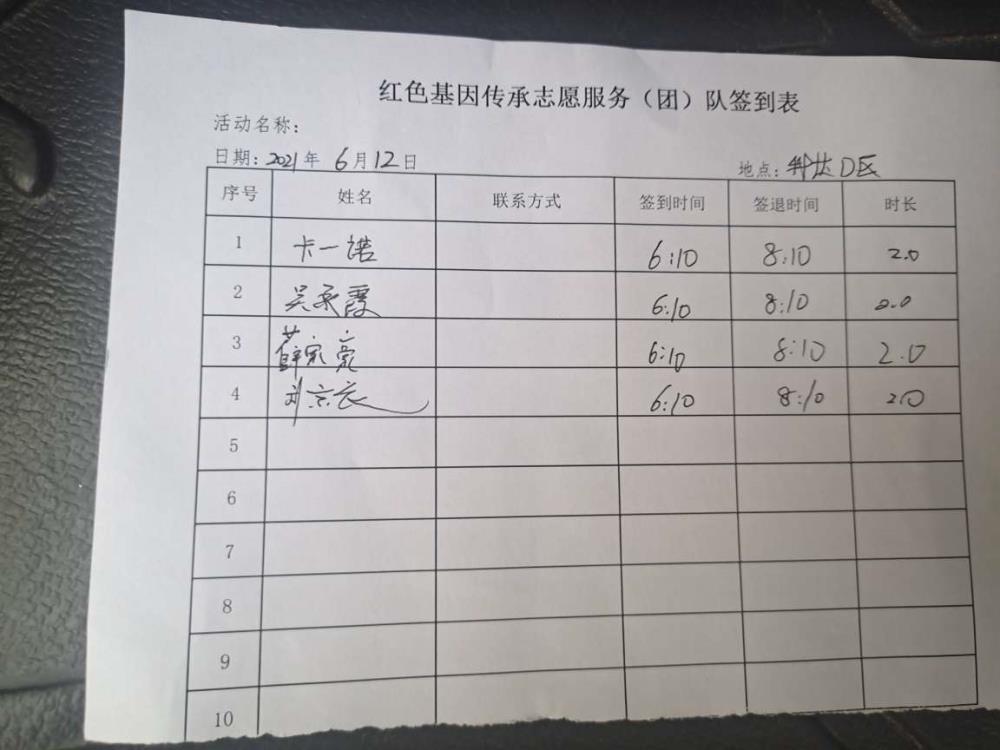 红色基因传承志愿服务（团）队签到表
活动名称：
日期：2021年 6月12日 地点：科达D区
序号 姓名 联系方式 签到时间 签退时间 时长
1 卡一诺 6:10 8:10 2.0
2 吴承霞 6:10 8:10 2.0
3 薛家豪 6:10 8:10 2.0
4 刘京辰 6:10 8:10 2.0
5
6
7
8
9
10